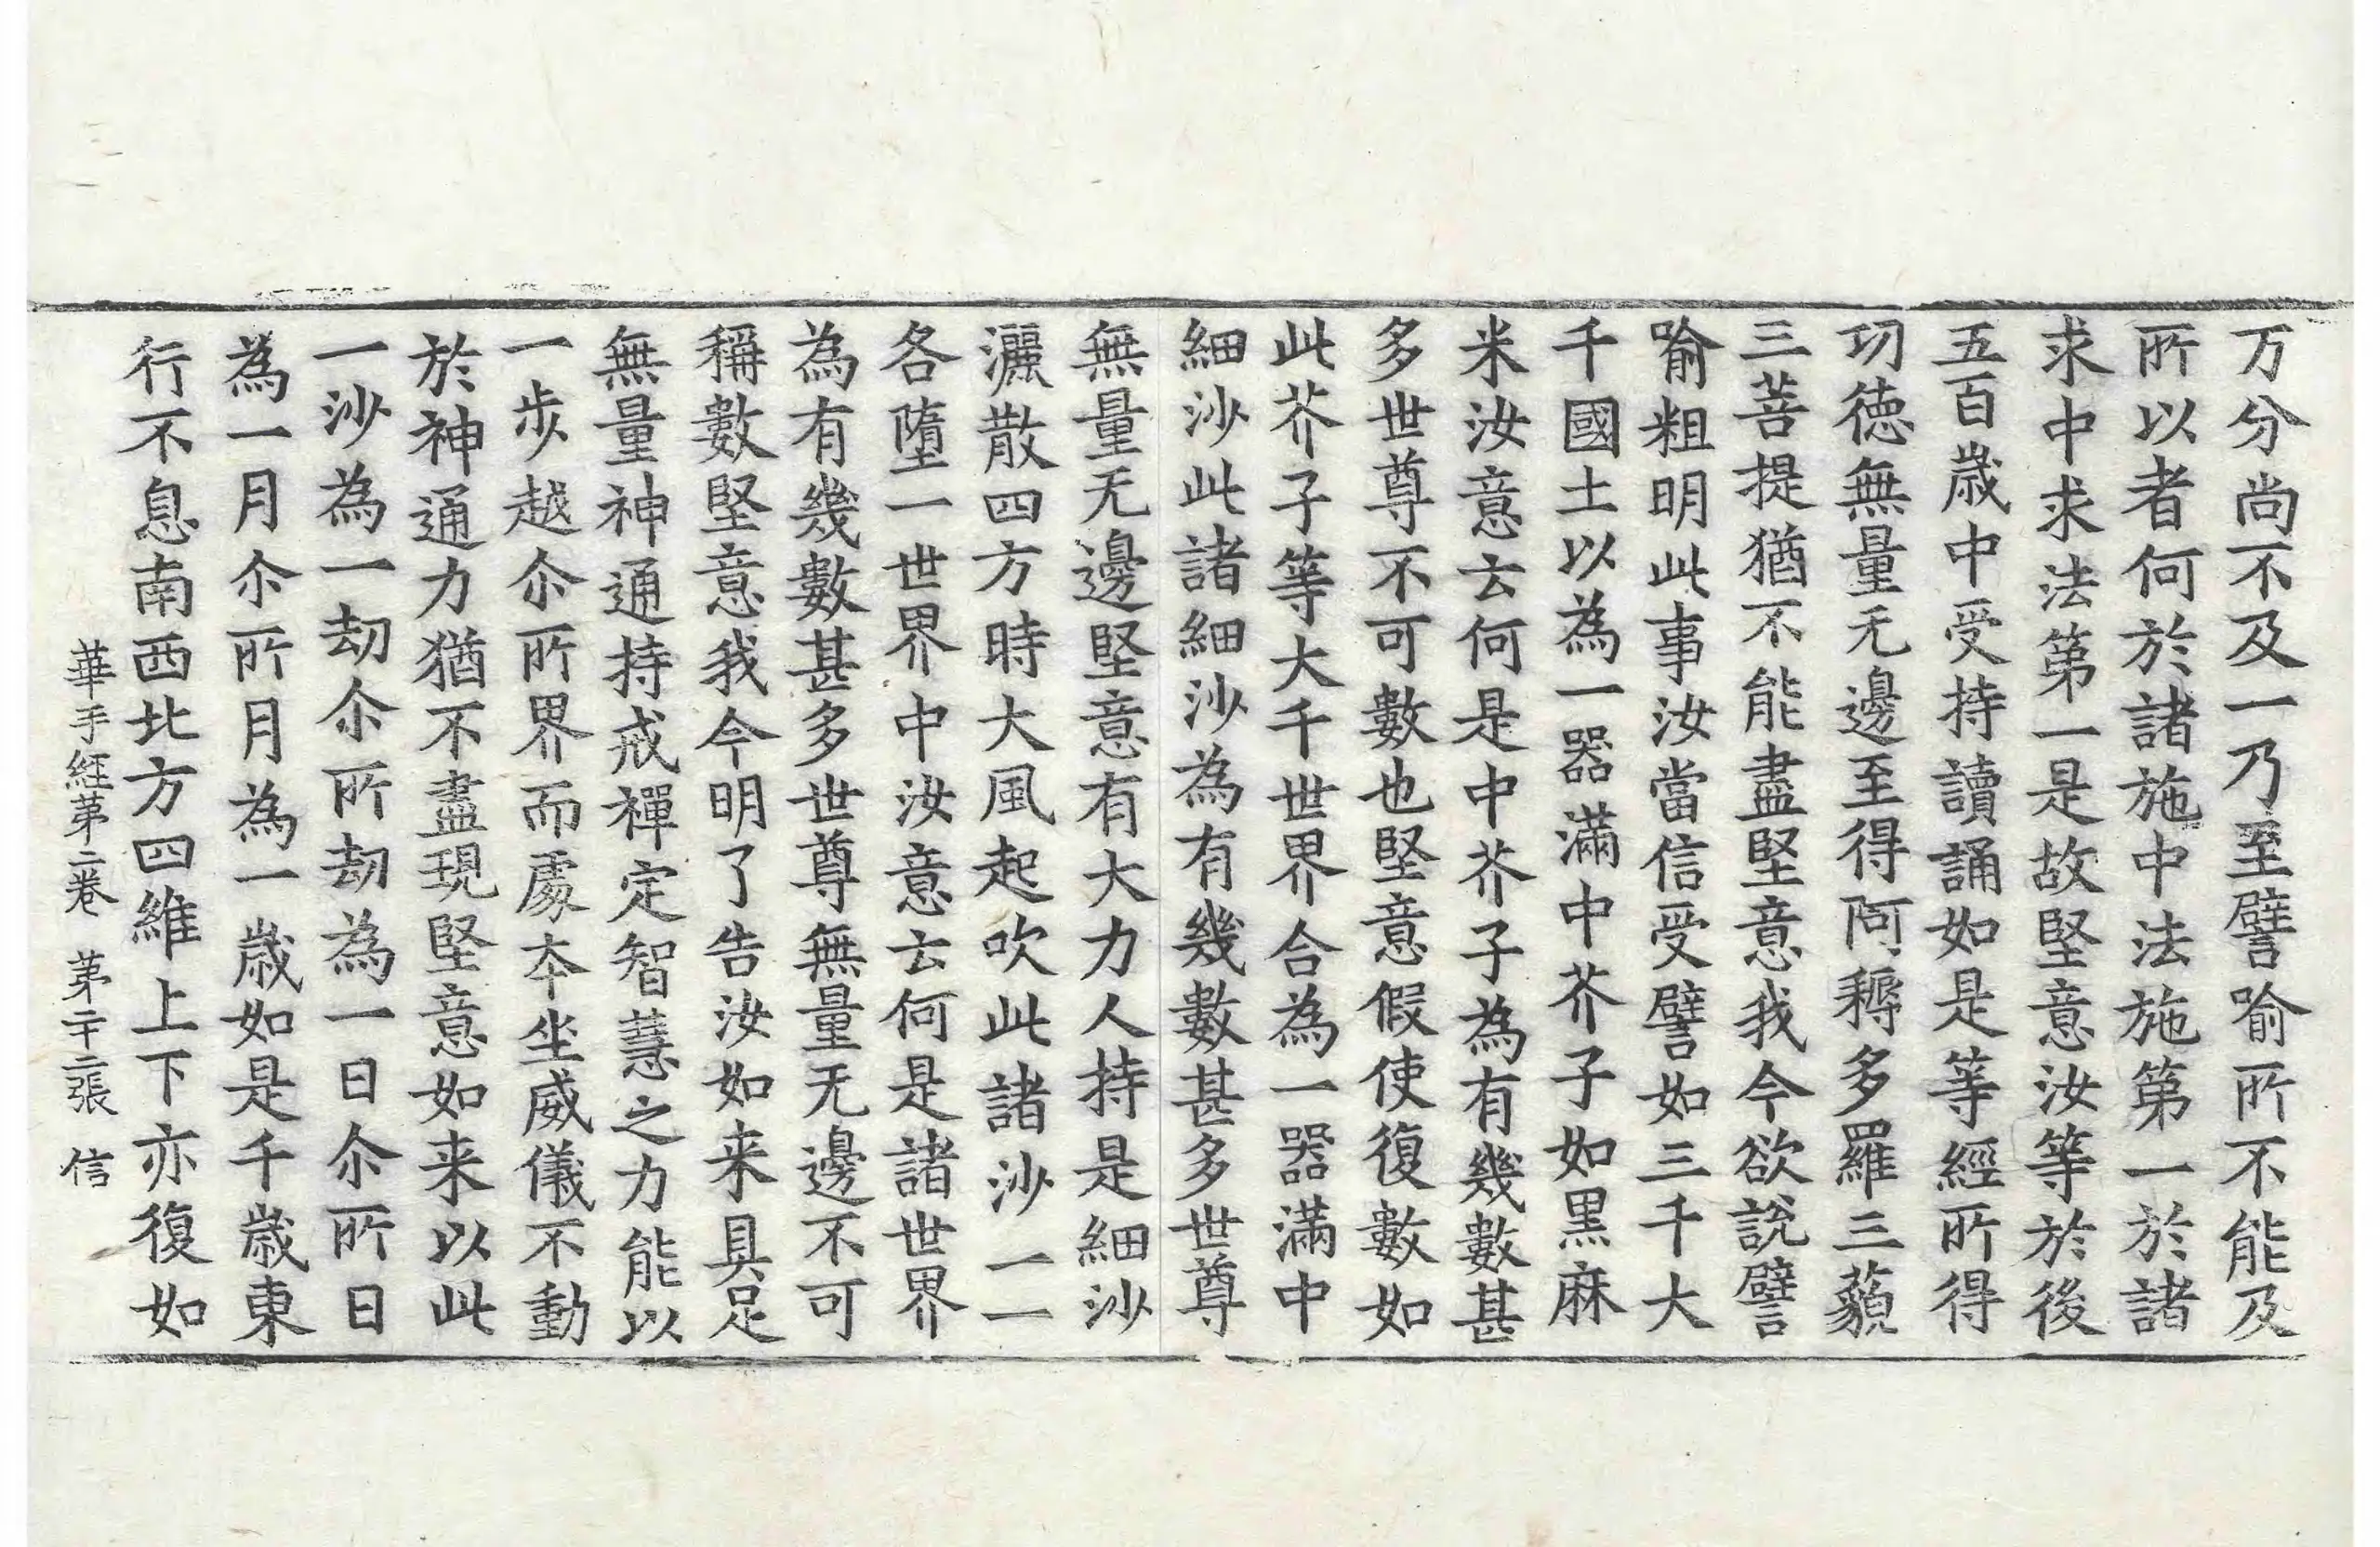 万分尚不及一乃至譬喻所不能及
所以者何於諸施中法施第一於諸
求中求法第一是故堅意汝等於後
五百歲中受持讀誦如是等經所得
功德無量无邊至得阿耨多羅三藐
三菩提猶不能盡堅意我今欲說譬
喻粗明此事汝當信受譬如三千大
千國土以為一器滿中芥子如黑麻
米汝意云何是中芥子為有幾數甚
多世尊不可數也堅意假使復數如
此芥子等大千世界合為一器滿中
細沙此諸細沙為有幾數甚多世尊
無量无邊堅意有大力人持是細沙
灑散四方時大風起吹此諸沙一一
各墮一世界中汝意云何是諸世界
為有幾數甚多世尊無量无邊不可
稱數堅意我今明了告汝如来具足
無量神通持戒禪定智慧之力能以
一步越尒所界而處本坐威儀不動
於神通力猶不盡現堅意如来以此
一沙為一劫尒所劫為一日尒所日
為一月尒所月為一歲如是千歲東
行不息南西北方四維上下亦復如
華手経第二卷 第二十二張 信